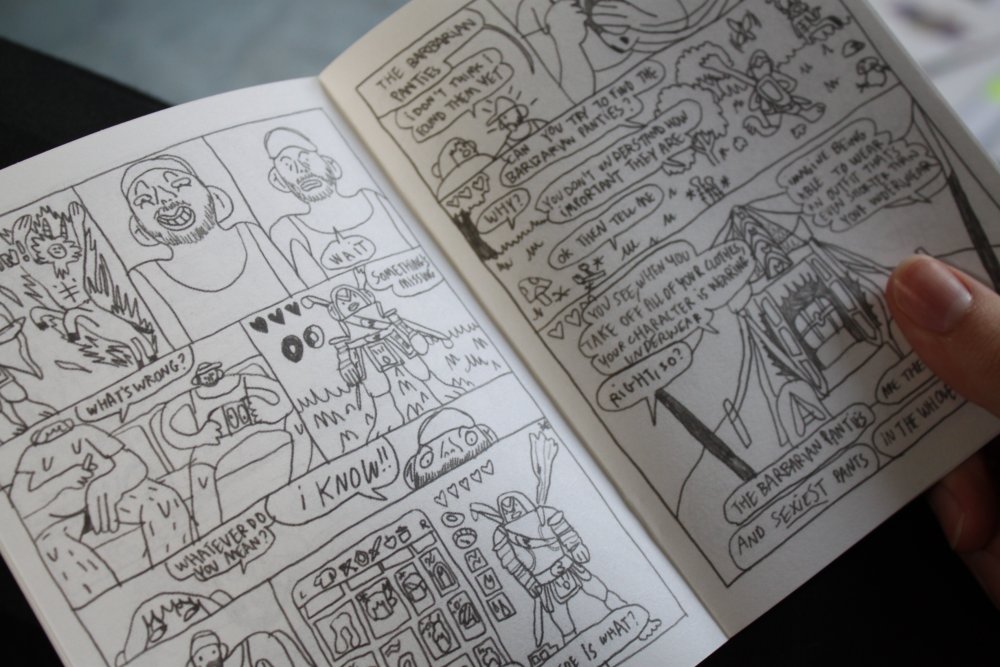 WAIT
SOMETHING'S
MISSING
WHAT'S WRONG?
I KNOW!!
WHATEVER DO
YOU MEAN?
IS WHAT?
THE BARBARIAN
PANTIES
I DON'T THINK I
FOUND THEM YET
CAN YOU TRY TO FIND THE
BARBARIAN PANTIES?
WHY?
YOU DON'T UNDERSTAND HOW
IMPORTANT THEY ARE
OK THEN TELL ME
IMAGINE BEING
ABLE TO WEAR
AN OUTFIT THAT'S
EVEN SHORTER THAN
YOUR UNDERWEAR
YOU SEE, WHEN YOU
TAKE OFF ALL OF YOUR CLOTHES
YOUR CHARACTER IS WEARING
UNDERWEAR
RIGHT, SO?
THE BARBARIAN PANTIES
ARE THE
IN THE WHOLE
AND SEXIEST PANTS